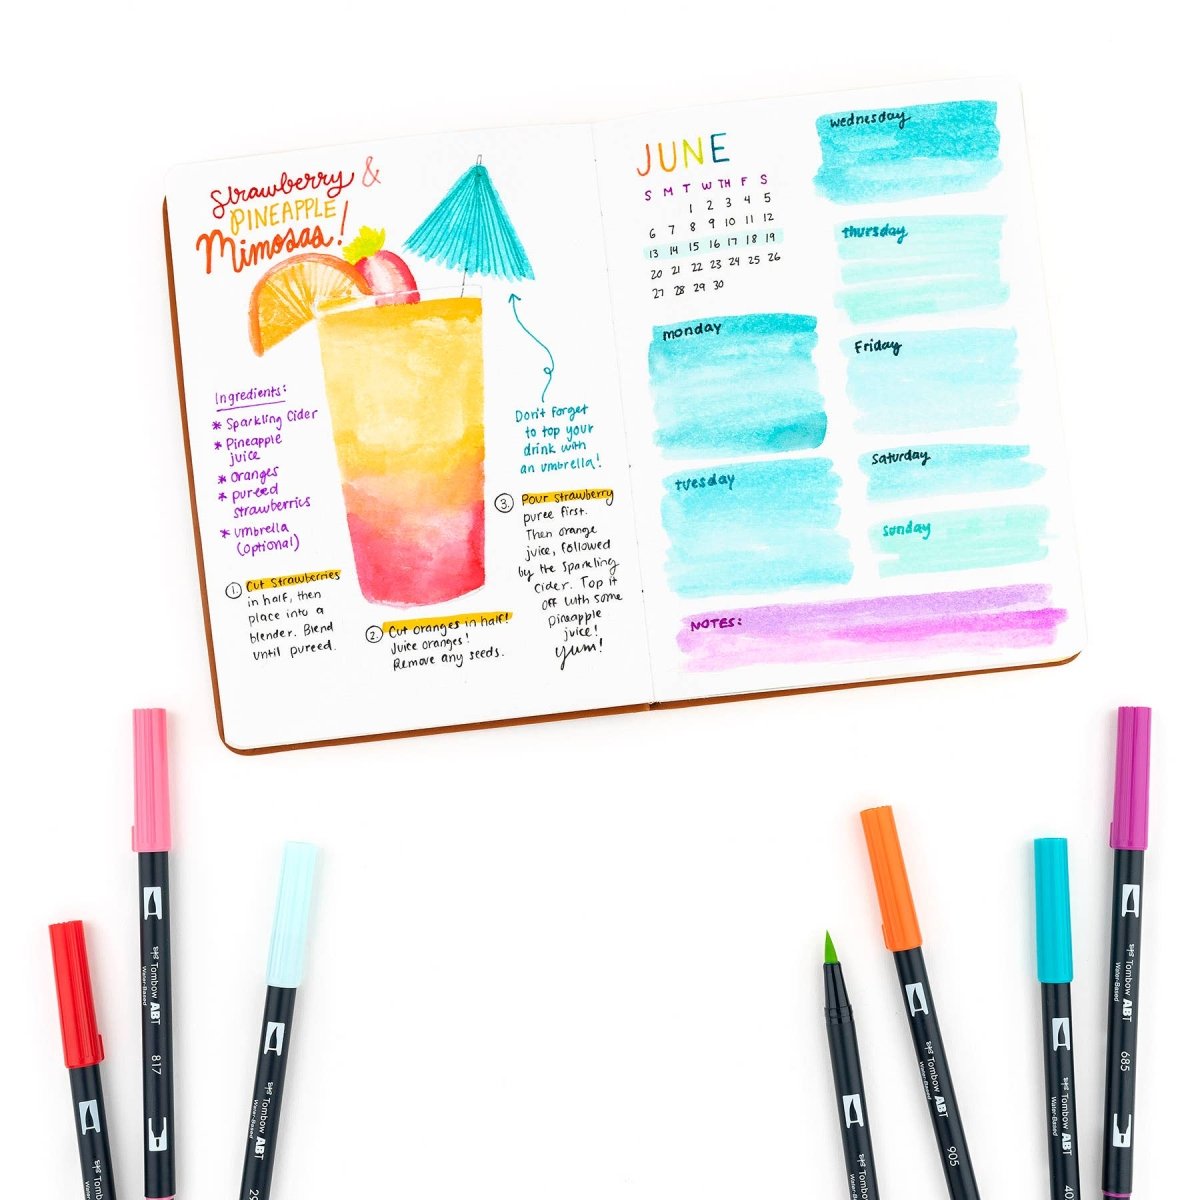 Strawberry &
PINEAPPLE
Mimosas!
Ingredients:
* Sparkling Cider
* Pineapple
juice
* oranges
* pureed
strawberries
* umbrella
(optional)
Don't forget
to top your
drink with
an umbrella!
1. Cut Strawberries
in half, then
place into a
blender. Blend
until pureed.
2. Cut oranges in half!
Juice oranges!
Remove any seeds.
3. Pour strawberry
puree first.
Then orange
juice, followed
by the sparkling
cider. Top it
off with some
pineapple
juice!
yum!
JUNE
S M T W TH F S
1 2 3 4 5
6 7 8 9 10 11 12
13 14 15 16 17 18 19
20 21 22 23 24 25 26
27 28 29 30
monday
tuesday
wednesday
thursday
Friday
Saturday
Sunday
NOTES:
Tombow
Tombow ABT
Water-Based
817
Tombow ABT
Water-Based
29
Tombow
Tombow ABT
Water-Based
905
Tombow ABT
Water-Based
40
Tombow ABT
Water-Based
685